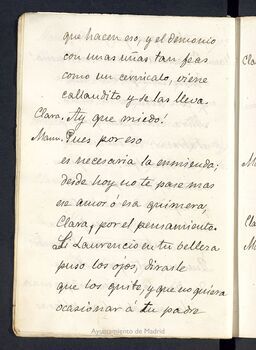 que hacen eso, y el demonio
con unas uñas tan feas
como un cernicalo, viene
callandito y se las lleva.
Clara. Ay que miedo!
Manu. Pues por eso
es necesaria la enmienda;
desde hoy no te pase mas
ese amor ó esa quimera,
Clara, por el pensamiento.
Si Laurencio en tu belleza
puso los ojos, dirasle
que los quite, y que no quiera
ocasionar á tu padre
Ayuntamiento de Madrid
Cla
M
Cla
M